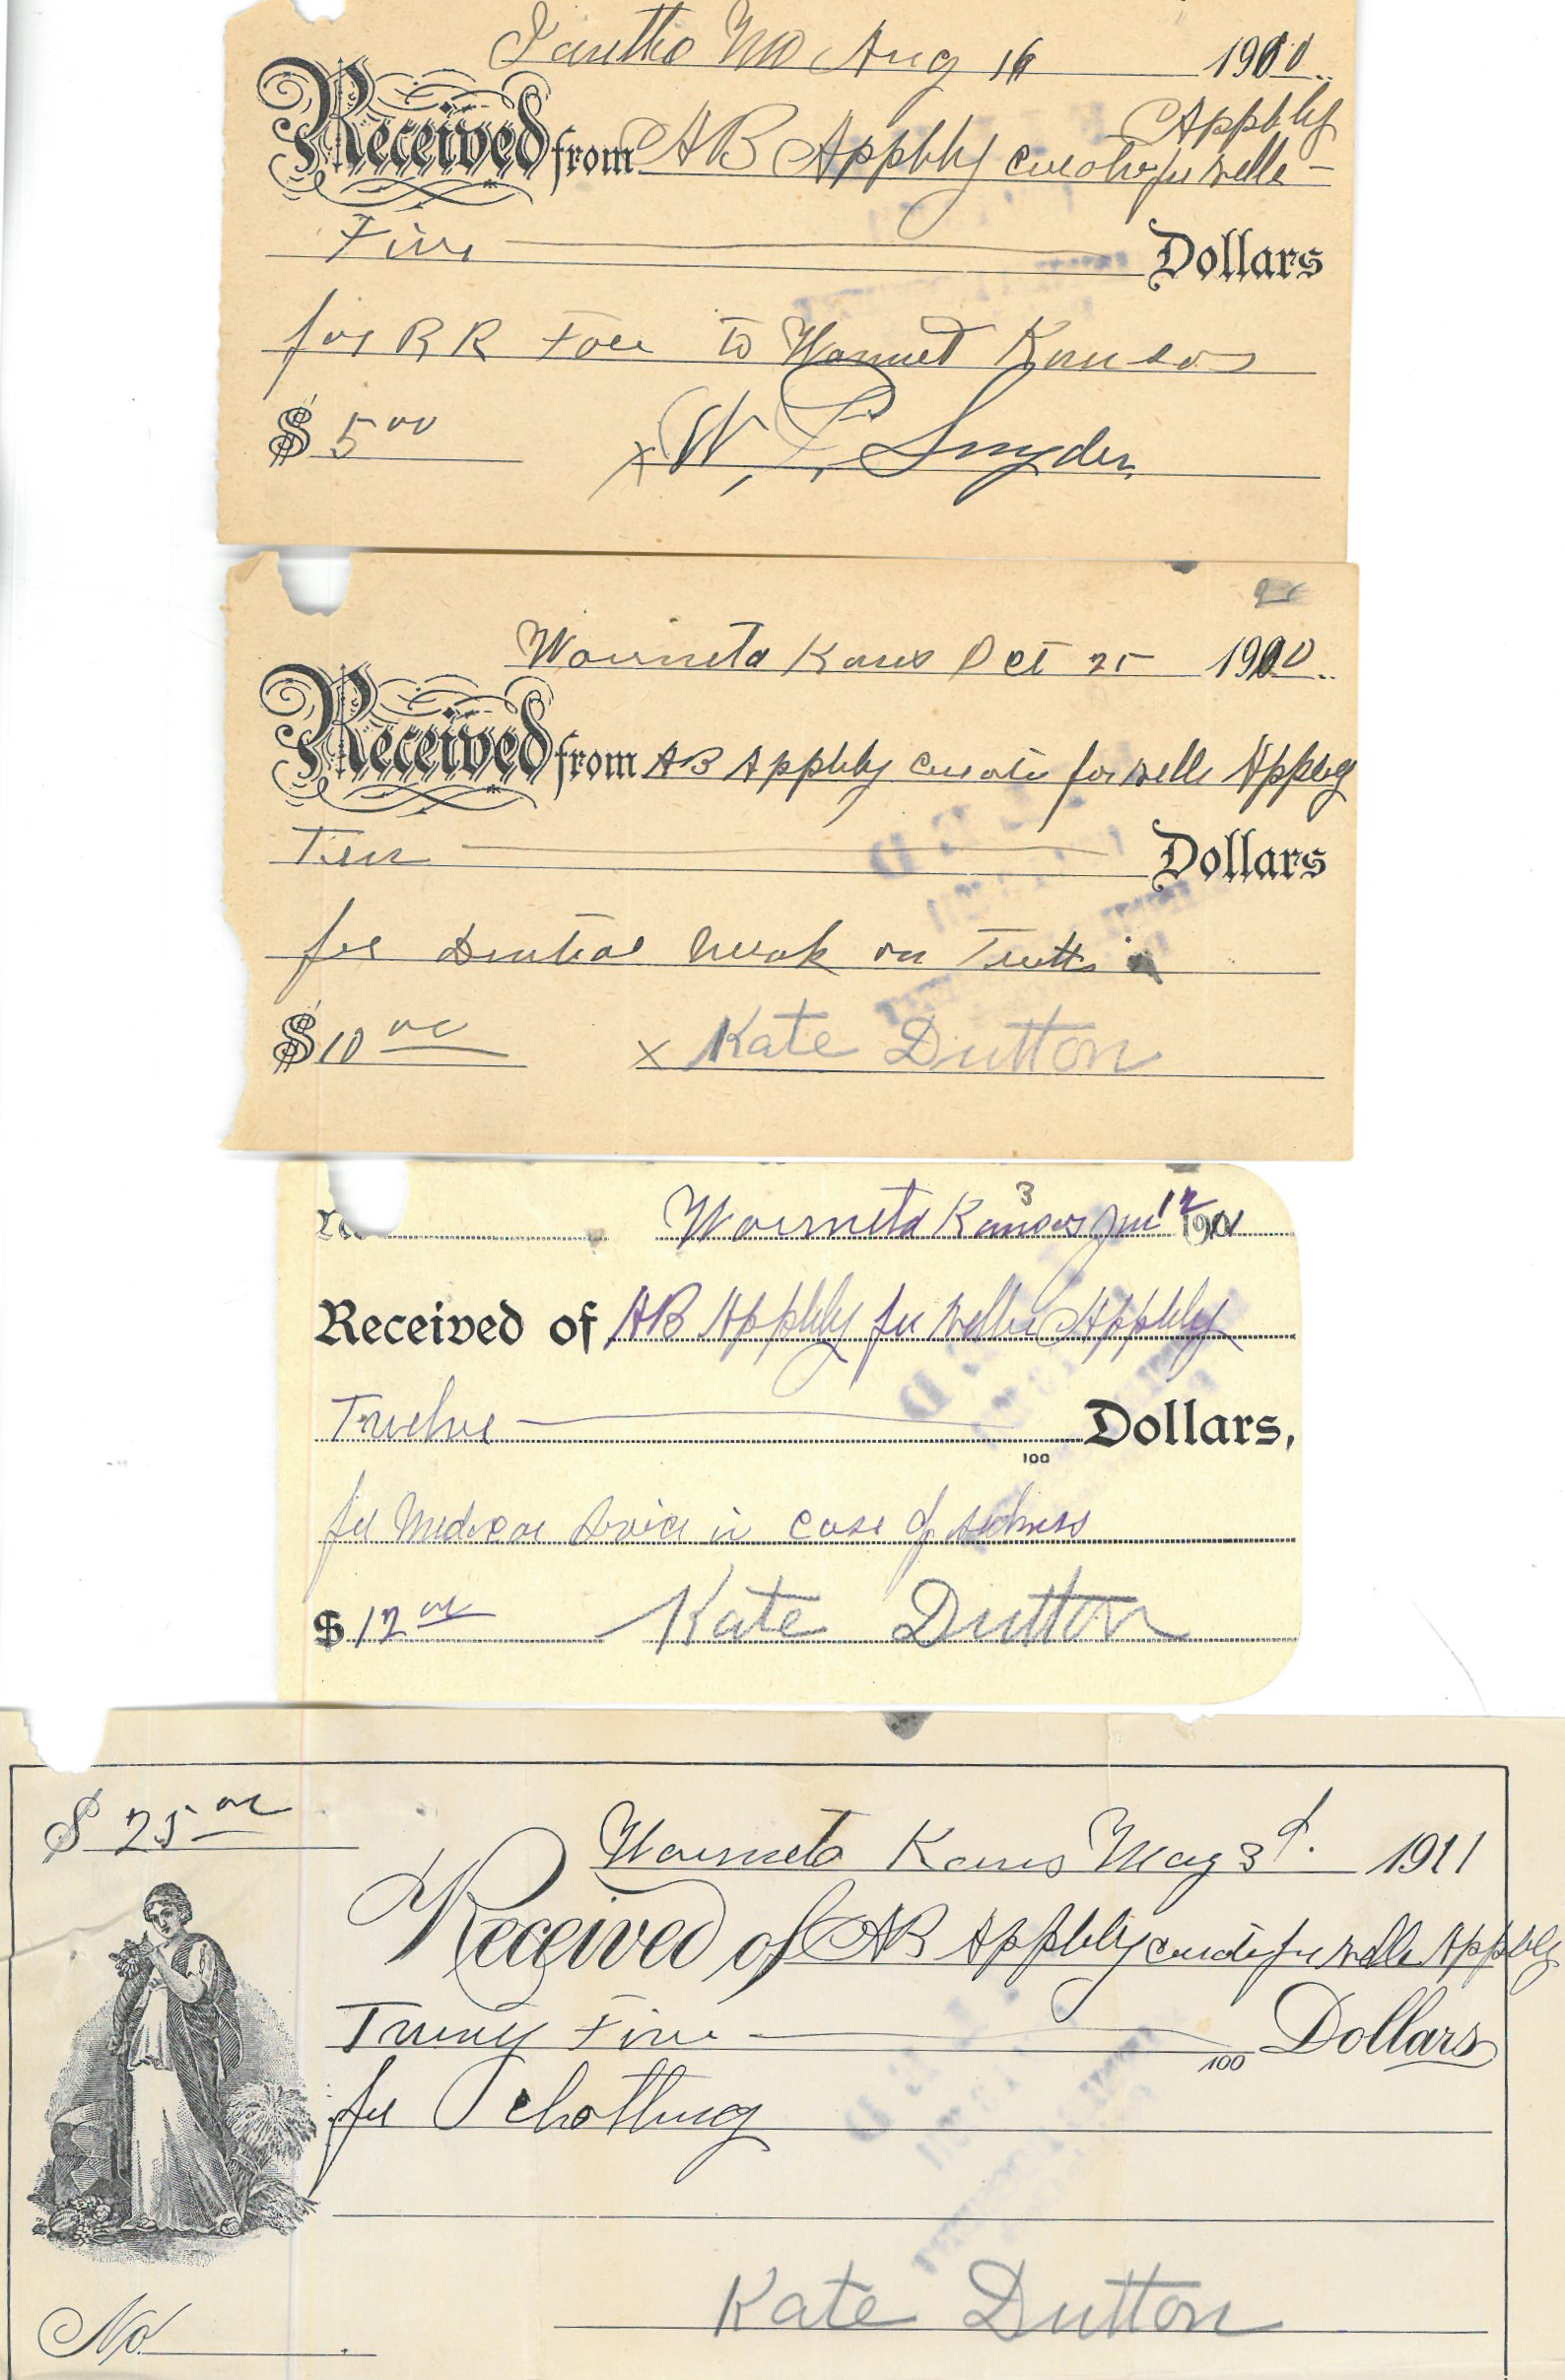 Iantha Mo Aug 16 1910
Appleby
Received from A B Appleby curator for Nelle
Five Dollars
for R R Fare to Kansas
$ 5 00 x W. P. Snyder
Wauneta Kans Oct 25 1910
Received from AB Appleby curator for Nelle Appleby
Ten Dollars
for Dental Work on Teeth
$ 10 00 x Kate Dutton
3
Wauneta Kansas 12 1901
Received of AB Appleby for Nellie Appleby
Twelve 100 Dollars,
for Medical Service in case of sickness
$ 12 00 Kate Dutton
$ 25 00
Wauneta Kans May 3d. 1911
Received of AB Appleby curator for Nelle Appleby
Twenty Five 100 Dollars
for Clothing
Kate Dutton
No.